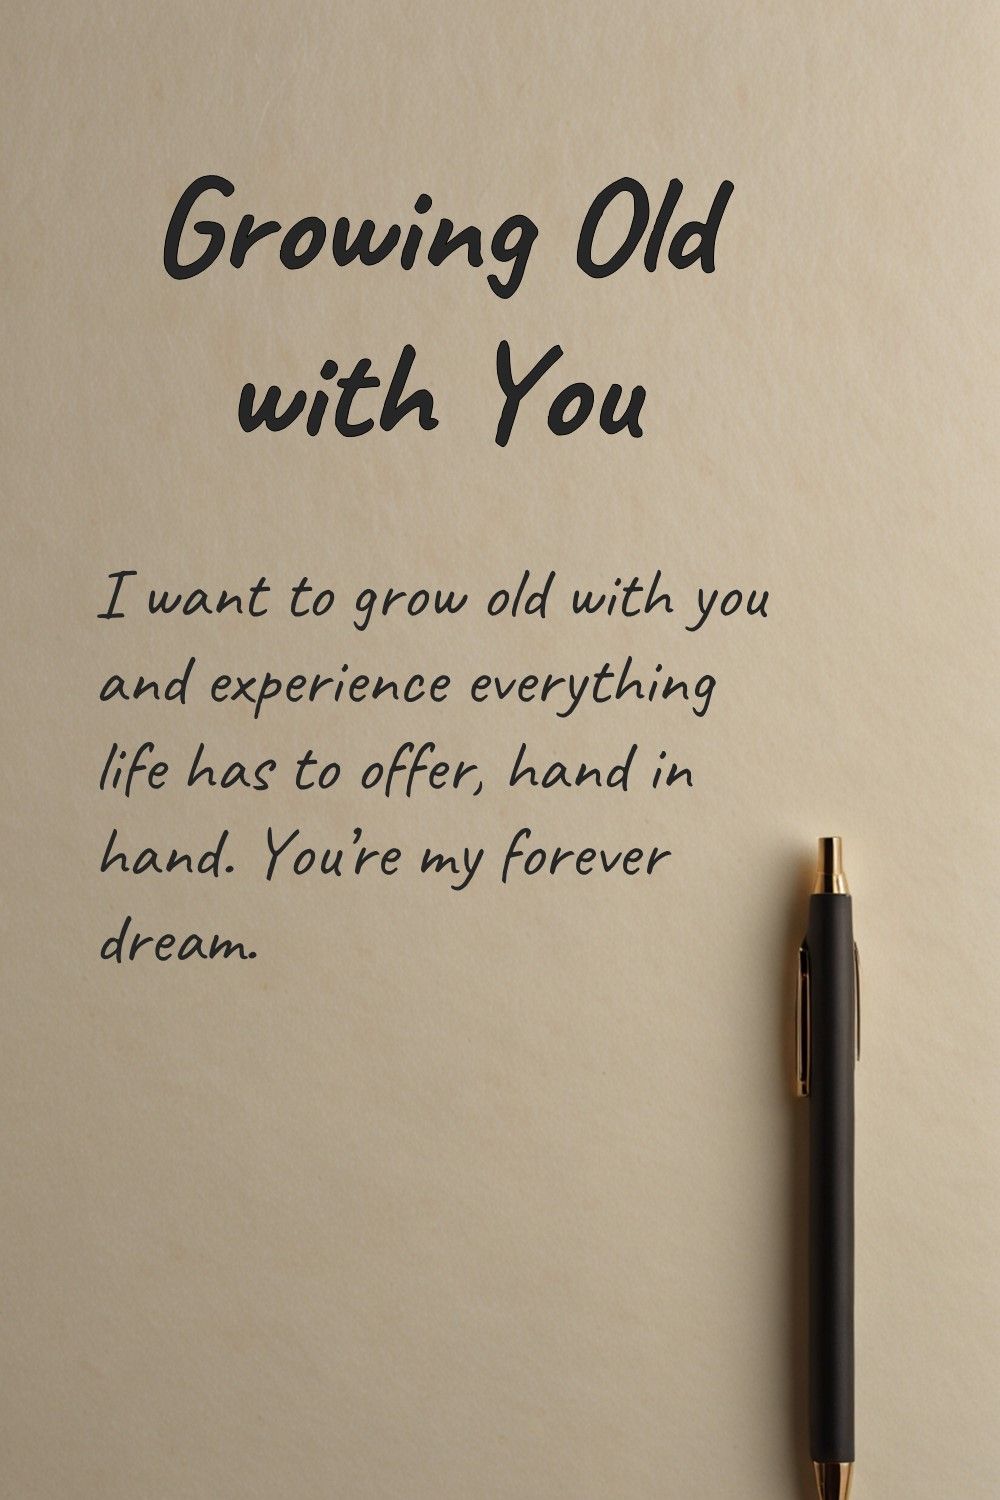 Growing Old
with You
I want to grow old with you
and experience everything
life has to offer, hand in
hand. You're my forever
dream.